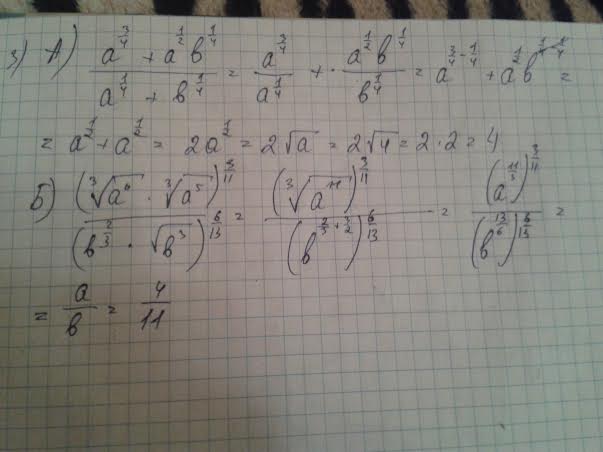 3) А) (a^{3/4} + a^{1/2} b^{1/4}) / (a^{1/4} + b^{1/4}) = a^{3/4} / a^{1/4} + · a^{1/2} b^{1/4} / b^{1/4} = a^{3/4 - 1/4} + a^{1/2} b^{1/4 - 1/4} =
= a^{1/2} + a^{1/2} = 2a^{1/2} = 2√a = 2√4 = 2·2 = 4
Б) (∛a⁶ · ∛a⁵)^{3/11} / (b^{2/3} · √b³)^{6/13} = (∛a¹¹)^{3/11} / (b^{2/3 + 3/2})^{6/13} = (a^{11/3})^{3/11} / (b^{13/6})^{6/13} =
= a/b = 4/11